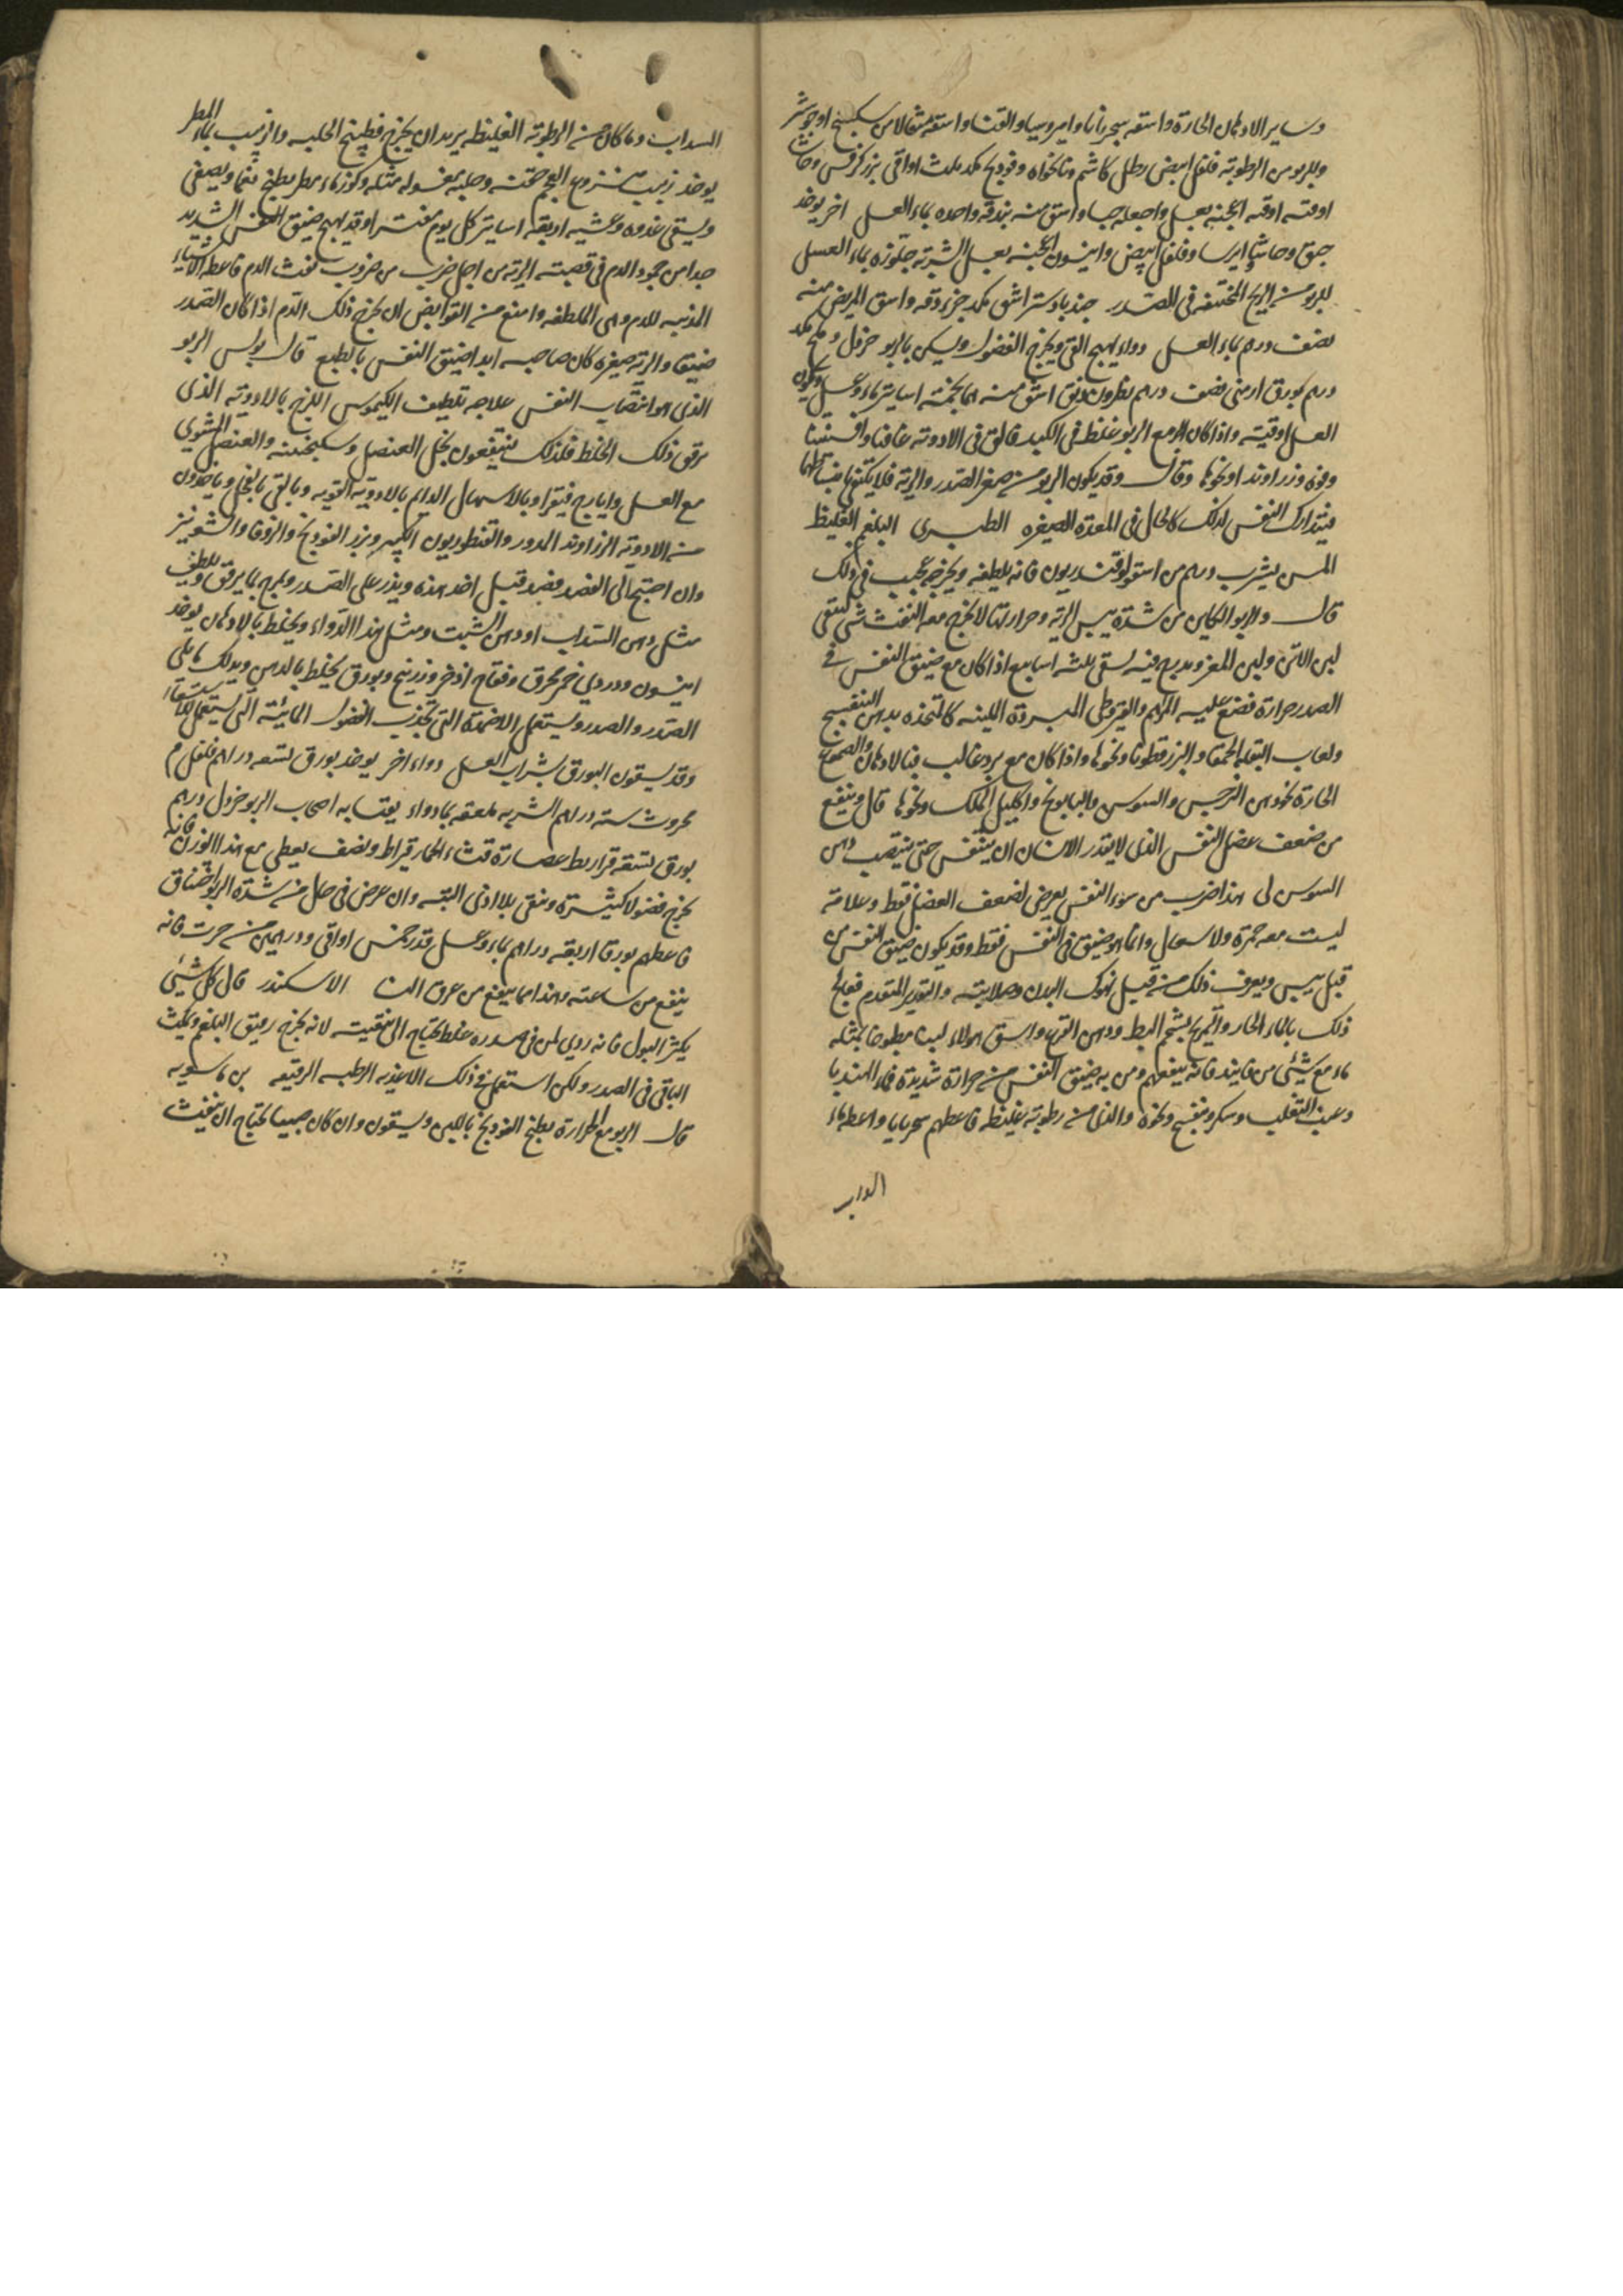 وساير الادهان الحارة واسقه سجرنايا وامروسيا والقفتا واسقه مثقالا من سكبينج او جوشير
وللربو من الرطوبة فلفل ابيض رطل كاشم ونانخواه وفودنج مكد ثلث اواقى بزر كرفس وحاشا
اوقية اوقيه اعجنه بعسل واجعله حبا واسق منه بندقه واحده بماء العسل اخر يوخذ
حبق وحاشا ايرسا وفلفل ابيض وانيسون اعجنه بعسل الشربة جلوزه بماء العسل
للربو من الريح المختنقه فى الصدر جندبادستر اشق مكد جزء دقه واسق المريض منه
نصف درهم بماء العسل دواء يهيج القى ويخرج الفضول ويسكن بالربو خردل وملح مكد
درهم بورق ارمنى نصف درهم نطرون اسق منه اسابيع بماء وعسل ويكون
العسل اوقيته واذا كان مع الربو غلظ فى الكبد فالق فى الادوية غافتا وافسنتينا
وفوه وزراوند او نحوها وقال وقد يكون الربو من صغر الصدر والرية فلا يكتفى
فيتدارك النفس لذلك كالحال فى المعدة الصغيره الطبرى البلغم الغليظ
المسن يشرب درهم من اسقولوقندريون فانه يلطفه ويخرجه عجيب فى ذلك
قال والربو الكاين من شدة يبس الرية وحرارتها لا يخرج معه النفث شى يسقى
لبن الاتن ولبن المعز ويدبج فيه يسقى ثلثه اسابيع اذا كان مع ضيق النفس فى
الصدر حرارة فضع عليه المرهم والقيروطى المبردة اللينه كالمتخذه بدهن البنفسج
ولعاب البقله الحمقا والبزرقطونا ونحوها واذا كان مع برد غالب فبالادهان والصموغ
الحارة نحو دهن النرجس والسوسن والبابونج واكليل الملك ونحوها قال وينفع
من ضعف عضل النفس الذى لا يقدر الانسان ان يتنفس حتى ينتصب دهن
السوسن لى هذا ضرب من سوء النفس يعرض لضعف العضل فقط وعلامته
ليست معه حمرة ولا سعال وانما هو ضيق فى النفس فقط وقد يكون ضيق النفس من
قبل يبس ويعرف ذلك من قبل نهوك البدن وصلابته والتدبير المتقدم فعالج
ذلك بالماء الحار والتمريخ بشحم البط ودهن القرع واسق هولاء لبنا مطبوخا بمثله
ماء مع شئ من فانيذ فانه ينفعهم ومن به ضيق النفس من حرارة شديدة فماء الهندبا
وعنب الثعلب وسكر وبنفسج ونحوه والذى من رطوبة غليظه فاعطهم سجرنايا واعطه بماء
السداب وما كان من الرطوبة الغليظه يريد ان يخرج فطبيخ الحلبه والزبيب بماء المطر
يوخذ زبيب منزوع العجم حفنة وحلبه مغسوله مثله وكوز ماء مطر يطبخ نعما ويصفى
ويسقى غدوه وعشيه اربعة اساتير كل يوم مفترا وقد يهيج ضيق النفس الشديد
جدا من جمود الدم فى قصبة الرية من اجل ضرب من ضروب نفث الدم فاعطه الاشياء
المذيبه للدم وهى الملطفه وامنع من القوابض ان يخرج ذلك الدم اذا كان الصدر
ضيقا والرية صغيره كان صاحبه ابدا ضيق النفس بالطبع قال بولس الربو
الذى هو انتصاب النفس علاجه تلطيف الكيموس اللزج بالادوية الذى
يرقق ذلك الخلط فلذلك ينتفعون بخل العنصل وسكنجبينه والعنصل المشوى
مع العسل وايارج فيقرا وبالاسهال الدايم بالادوية القويه وبالقى بالفجل وياخذون
من الادوية الزراوند المدور والقنطوريون الكبير وبزر الفودنج والزوفا والشونيز
وان احتيج الى الفصد فصد قبل اخذ هذه ويذر على الصدر ويمرخ بما يرقق ويلطف
مثل دهن السداب او دهن الشبت ومثل هذا الدواء ويخلط بالادهان يوخذ
انيسون ودردى خمر محرق وفقاح اذخر وزرنيخ وبورق يخلط بالدهن ويدلك ما يلى
الصدر والصدر ويستعمل الاضمدة التى تجذب الفضول المائية التى يستعمل للاستسقاء
وقد يسقون البورق بشراب العسل دواء اخر يوخذ بورق تسعه دراهم فلفل م
محروث سته دراهم الشربه ملعقه بماء دواء يعتنا به اصحاب الربو خردل درهم
بورق تسعه قراريط عصارة قثاء الحمار قيراط ونصف يعطى مع هذا الوزن فانه
يخرج فضولا كثيرة وينقى بلا اذى البتة وان عرض فى حال من شدة الربو اختناق
فاعطهم بورقا اربعة دراهم بماء وعسل قدر خمس اواقى ودرهمين من حرف فانه
ينفع من ساعته وهذا مما ينفع من عرق النسا الاسكندر قال كل شئ
يكثر البول فانه ردى لمن فى صدره خلط يحتاج الى تنقيته لانه يخرج رقيق البلغم ويلبث
الباقى فى الصدر ولكن استعمل فى ذلك الاغذيه الرطبه الرقيقه بن ماسويه
قال الربو مع الحرارة يطبخ الفودنج باللبن ويسقون وان كان صبيا يحتاج ان ينفث
السداب